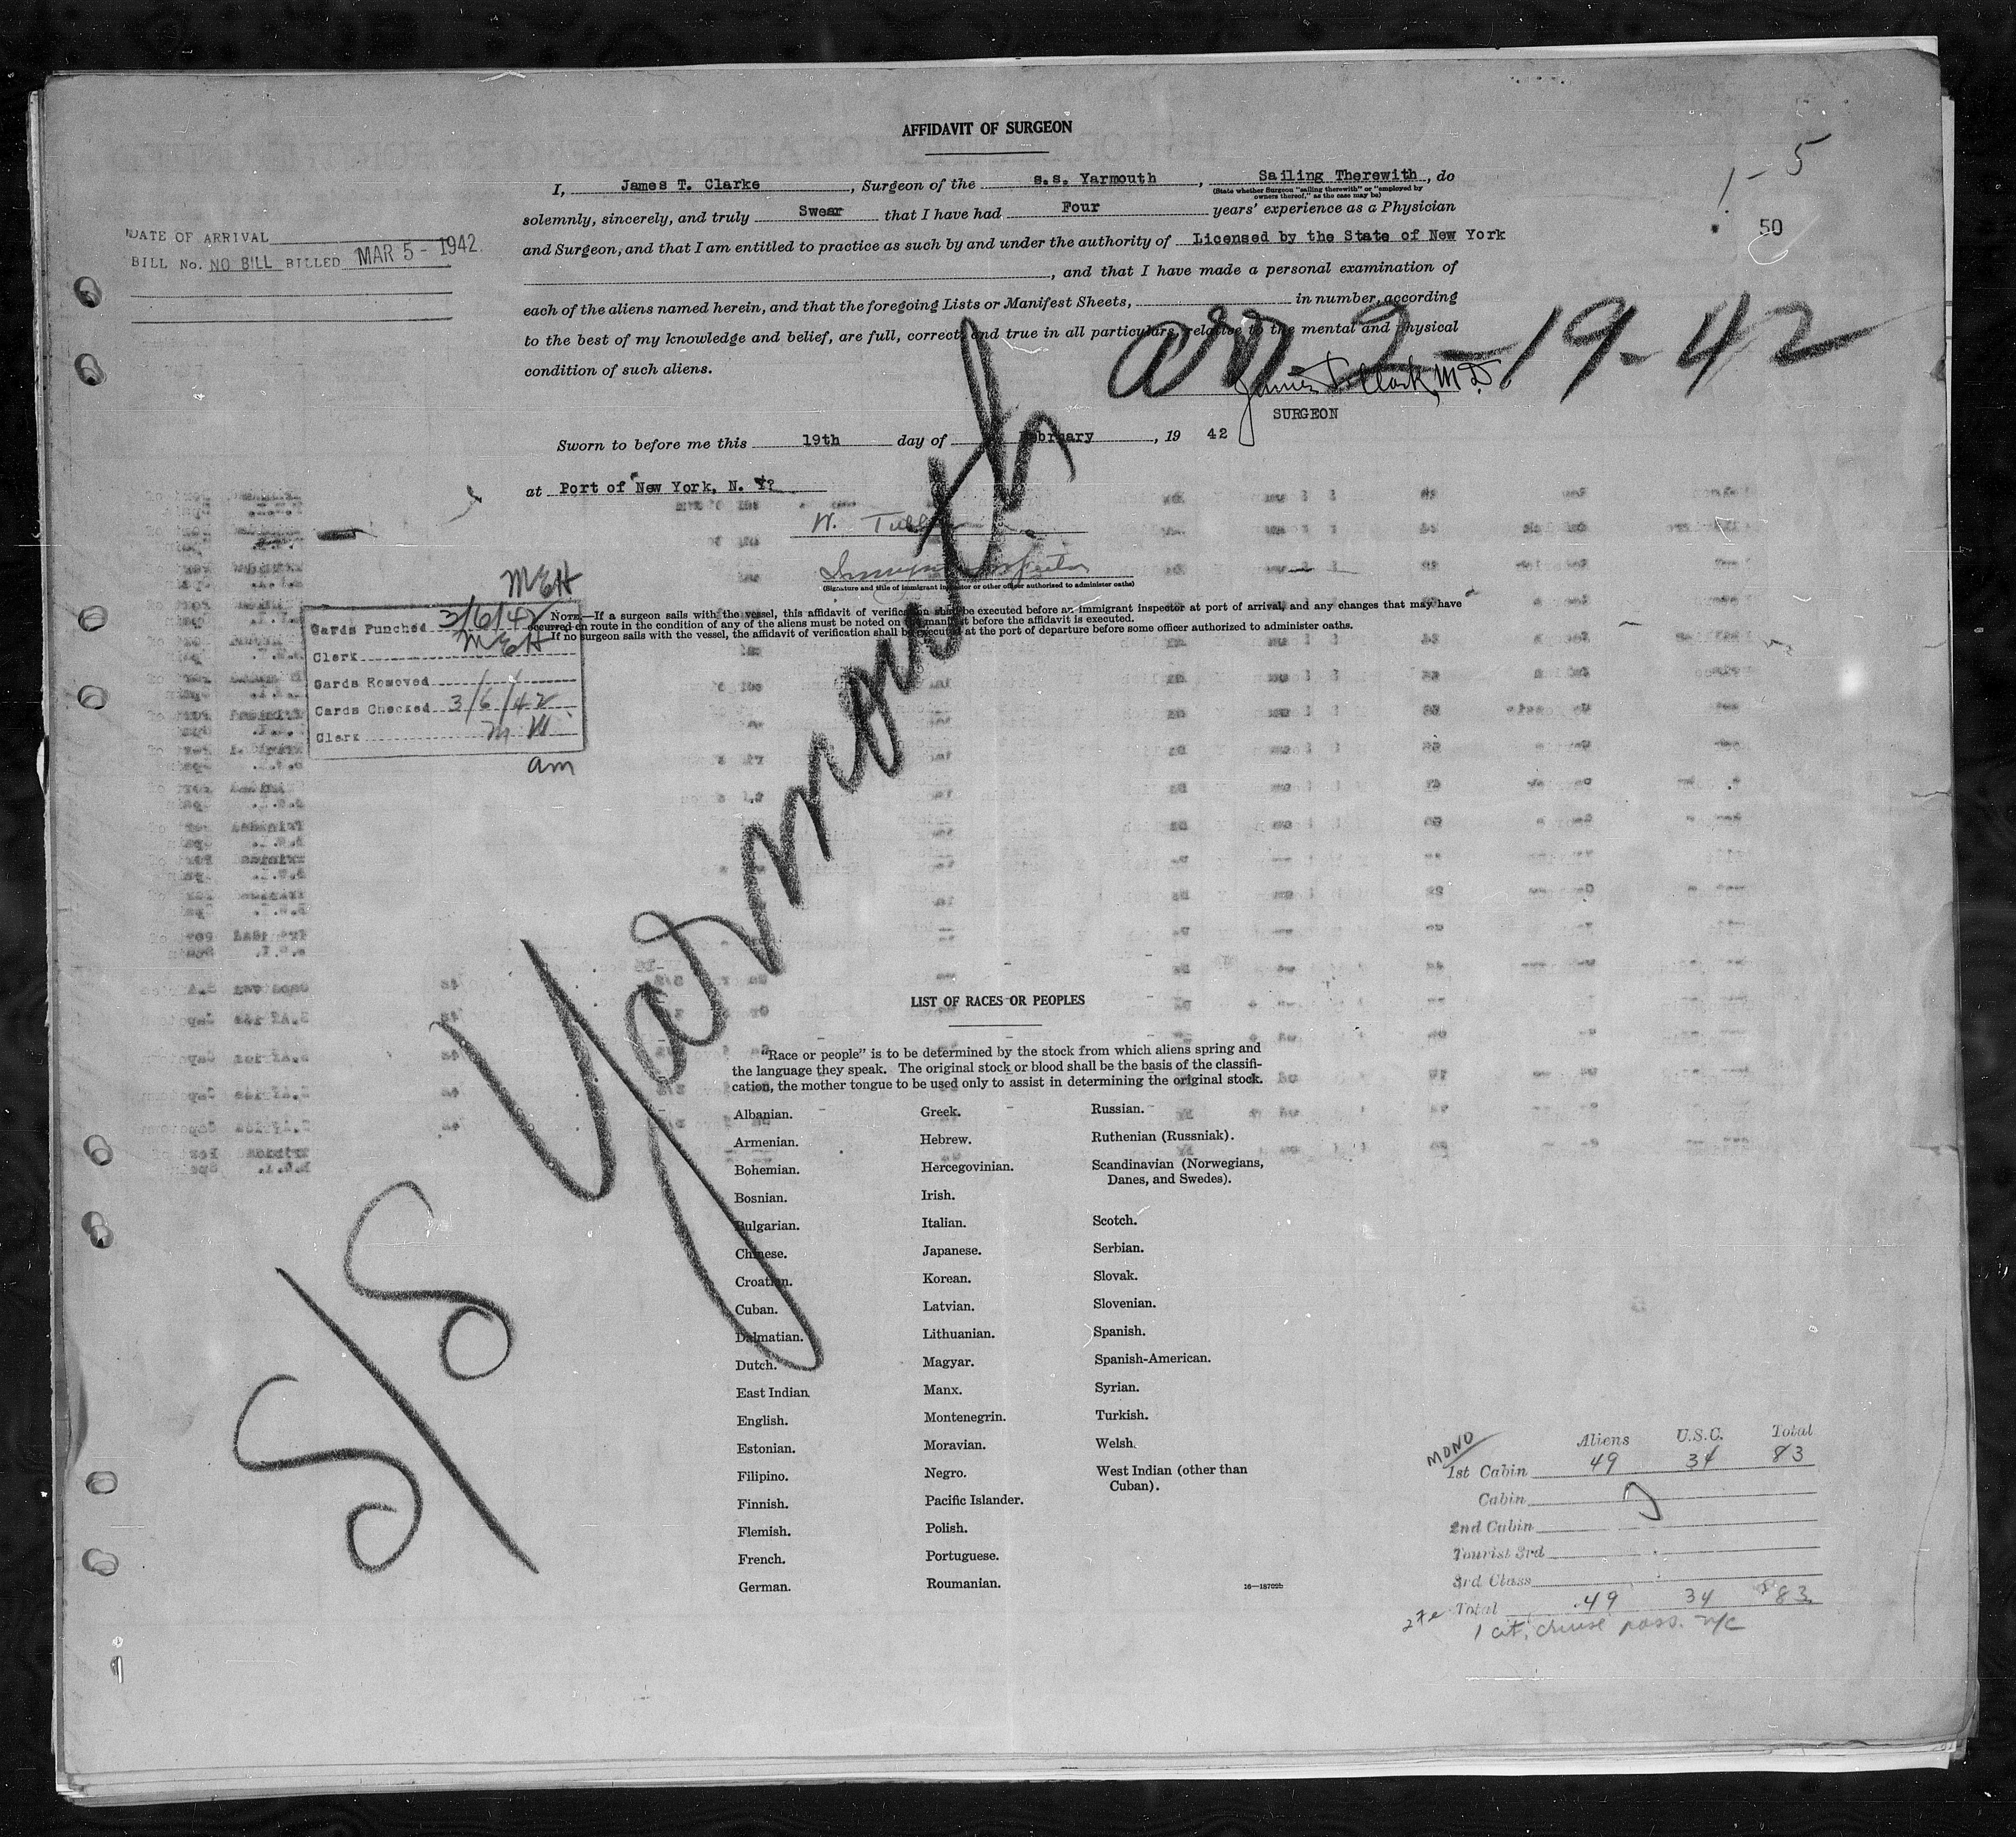 AFFIDAVIT OF SURGEON
I, James T. Clarke, Surgeon of the s.s. Yarmouth, Sailing Therewith, do
(State whether Surgeon "sailing therewith" or "employed by
owners thereof," as the case may be)
solemnly, sincerely, and truly Swear that I have had Four years' experience as a Physician
and Surgeon, and that I am entitled to practice as such by and under the authority of Licensed by the State of New York
, and that I have made a personal examination of
each of the aliens named herein, and that the foregoing Lists or Manifest Sheets, in number, according
to the best of my knowledge and belief, are full, correct, and true in all particulars, relative to the mental and physical
condition of such aliens.
1-5
50
DATE OF ARRIVAL
BILL No. NO BILL BILLED MAR 5 - 1942
arr. 2-19-42
James T. Clark, M.D.
SURGEON
Sworn to before me this 19th day of February, 19 42
at Port of New York, N. Y?
W.
Immigrant Inspector
(Signature and title of immigrant inspector or other officer authorized to administer oaths)
NOTE.—If a surgeon sails with the vessel, this affidavit of verification shall be executed before an immigrant inspector at port of arrival, and any changes that may have
occurred en route in the condition of any of the aliens must be noted on the manifest before the affidavit is executed.
If no surgeon sails with the vessel, the affidavit of verification shall be executed at the port of departure before some officer authorized to administer oaths.
MEH
Cards Punched 3/6/42
Clerk MEH
Cards Removed
Cards Checked 3/6/42
Clerk M W
am
S/S Yarmouth
LIST OF RACES OR PEOPLES
"Race or people" is to be determined by the stock from which aliens spring and
the language they speak. The original stock or blood shall be the basis of the classifi-
cation, the mother tongue to be used only to assist in determining the original stock.
Albanian.
Armenian.
Bohemian.
Bosnian.
Bulgarian.
Chinese.
Croatian.
Cuban.
Dalmatian.
Dutch.
East Indian.
English.
Estonian.
Filipino.
Finnish.
Flemish.
French.
German.
Greek.
Hebrew.
Hercegovinian.
Irish.
Italian.
Japanese.
Korean.
Latvian.
Lithuanian.
Magyar.
Manx.
Montenegrin.
Moravian.
Negro.
Pacific Islander.
Polish.
Portuguese.
Roumanian.
Russian.
Ruthenian (Russniak).
Scandinavian (Norwegians,
Danes, and Swedes).
Scotch.
Serbian.
Slovak.
Slovenian.
Spanish.
Spanish-American.
Syrian.
Turkish.
Welsh.
West Indian (other than
Cuban).
16—18702b
MONO
Aliens U.S.C. Total
1st Cabin 49 34 83
Cabin
2nd Cabin
Tourist 3rd
3rd Class
Total 49 34 83
1 cit. cruise pass. n/c